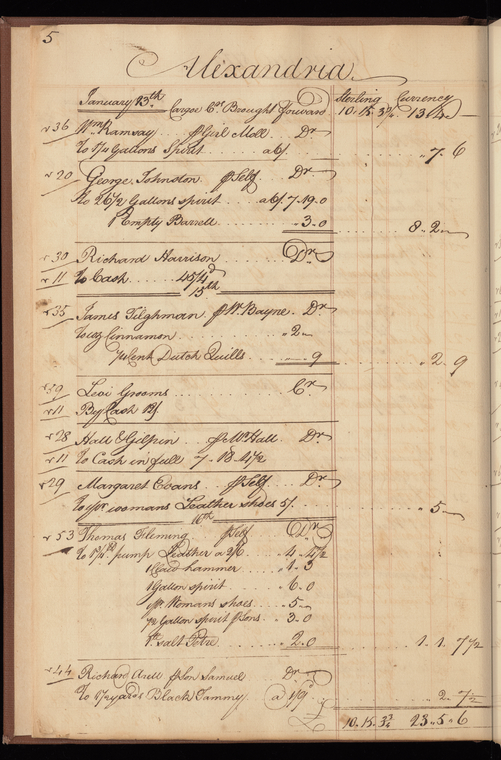 5
Alexandria
January 13th Cargoe Cr. Brought forward Sterling 10.15.3¾ Currency 13.
36 Wm. Ramsay ℔ Girl Moll Dr
To 1¼ Gallons Spirit a 6/ 7.6
20 George Johnston ℔ Self Dr
To 26½ Gallons spirit a 6/ 7.19.0
1 Empty Barrell 3.0 8.2
30 Richard Harrison Dr
11 To Cash 45/4d
15th
35 James Tilghman ℔ W. Bayne Dr
To oz Cinnamon 2
Dutch Quills 9 2.9
39 Levi Grooms Cr
11 By Cash 12/
28 Hall & Gilpin ℔ Wm Hall Dr
11 To Cash in full 7.18.4½
29 Margaret Evans ℔ Self Dr
To 1 pr womans Leather shoes 5/ 5
16th
53 Thomas Fleming ℔ Self Dr
To 1¾ lb pump Leather a 2/6 4.4½
1 Claw hammer 1.3
1 Gallon spirit 6.0
1 pr Womans shoes 5
½ Gallon spirit ℔ Sons 3.0
1 lb salt Petre 2.0 1.1.7½
44 Richard ℔ Son Samuel Dr
To 1½ yards Black Tammy a 1/9 2.7½
10.15.3¾ 23.5.6